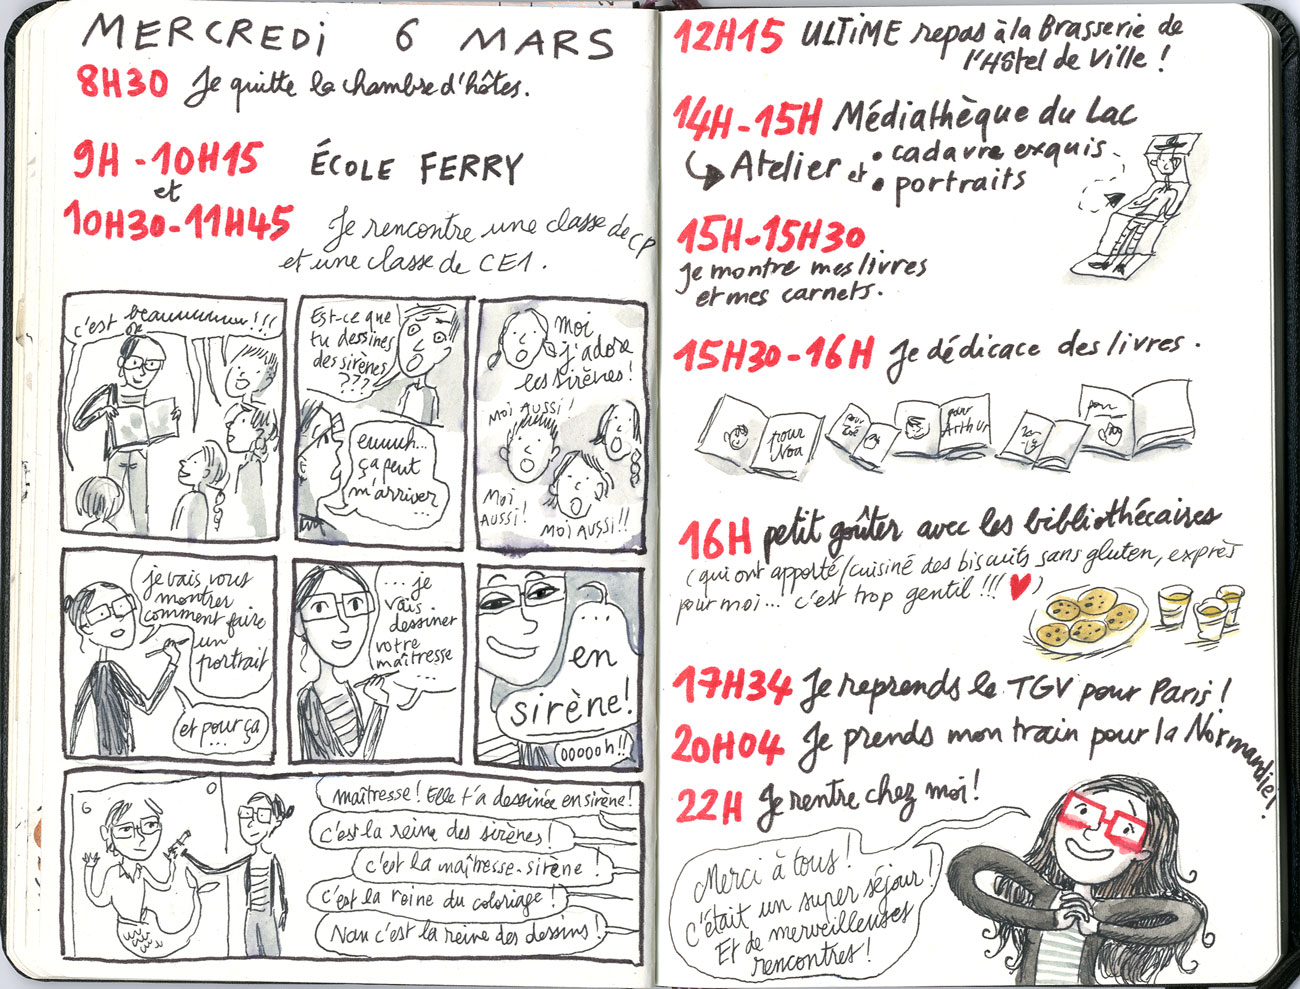 MERCREDI 6 MARS
8H30 Je quitte la chambre d'hôtes.
9H - 10H15 ÉCOLE FERRY
et
10H30-11H45 Je rencontre une classe de CP
et une classe de CE1.
c'est beauuuuuuu!!!
Est-ce que
tu dessines
des sirènes
???
euuuh...
ça peut
m'arriver
...
Moi
j'adore
les sirènes!
MOI AUSSI!
MOI
AUSSI!
MOI AUSSI!!
je vais vous
montrer
comment faire
un
portrait
et pour ça
...
... je
vais
dessiner
votre
maîtresse
...
...
en
sirène!
OOOOOh!!
maîtresse! Elle t'a dessinée en sirène!
C'est la reine des sirènes!
C'est la maîtresse-sirène!
C'est la reine du coloriage!
Nan c'est la reine des dessins!
12H15 ULTIME repas à la Brasserie de
l'Hôtel de Ville!
14H-15H Médiathèque du Lac
Atelier et • cadavre exquis
• portraits
15H-15H30
Je montre mes livres
et mes carnets.
15H30-16H Je dédicace des livres.
pour
Noa
pour
Zoé
pour
Arthur
pour
16H petit goûter avec les bibliothécaires
(qui ont apporté/cuisiné des biscuits sans gluten, exprès
pour moi... c'est trop gentil!!! ♥)
17H34 Je reprends le TGV pour Paris!
20H04 Je prends mon train pour la Normandie!
22H Je rentre chez moi!
Merci à tous!
C'était un super séjour!
Et de merveilleuses
rencontres!